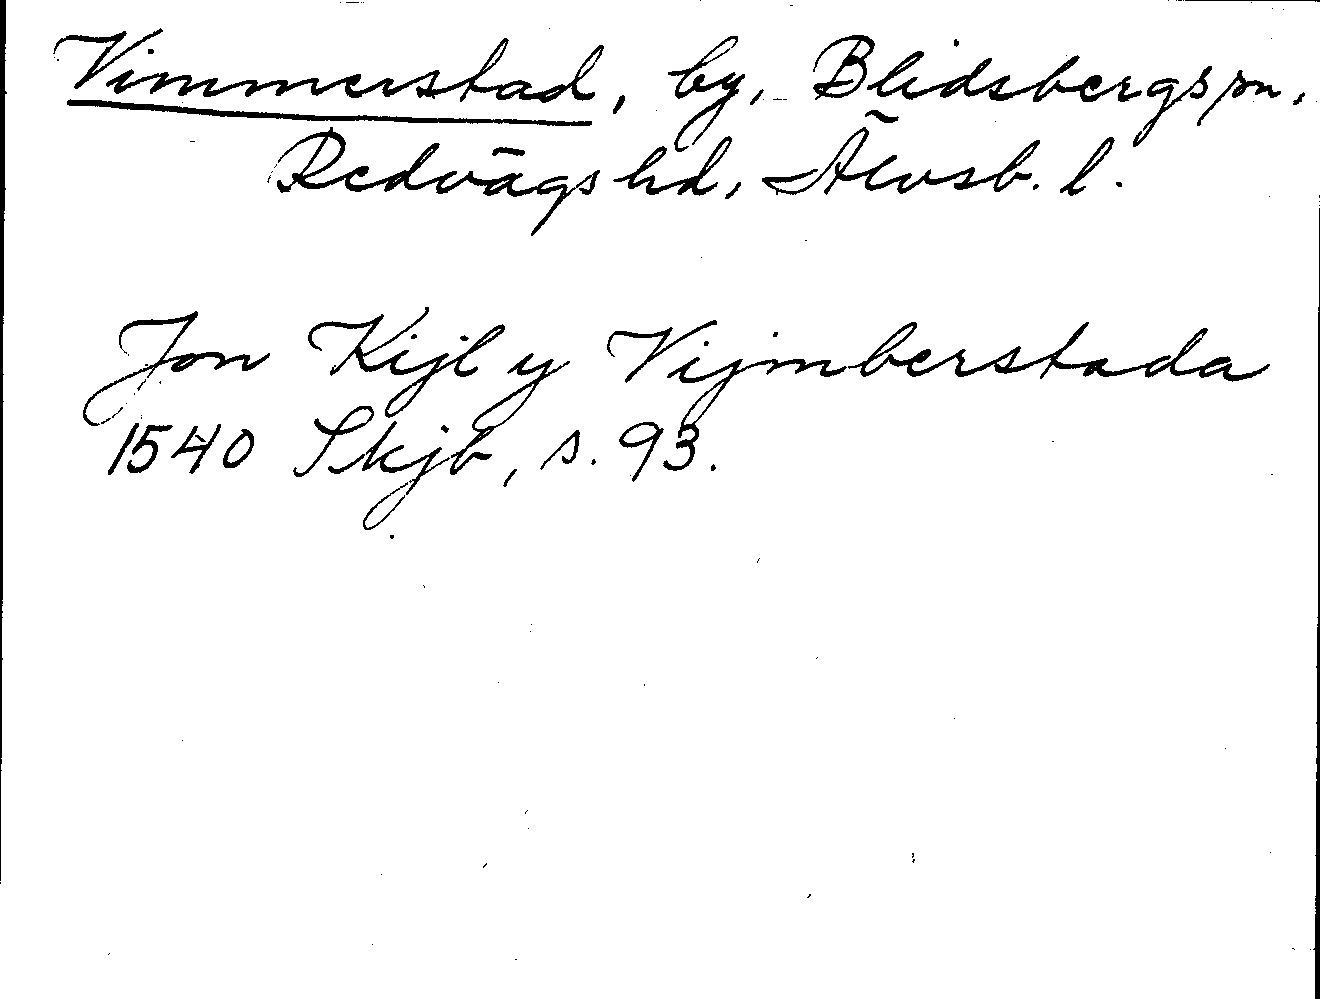 Vimmerstad, by, Blidsbergs sn,
Redvägs hd, Älvsb. l.
Jon Kijl y Vijmberstada
1540 Skjb, s. 93.